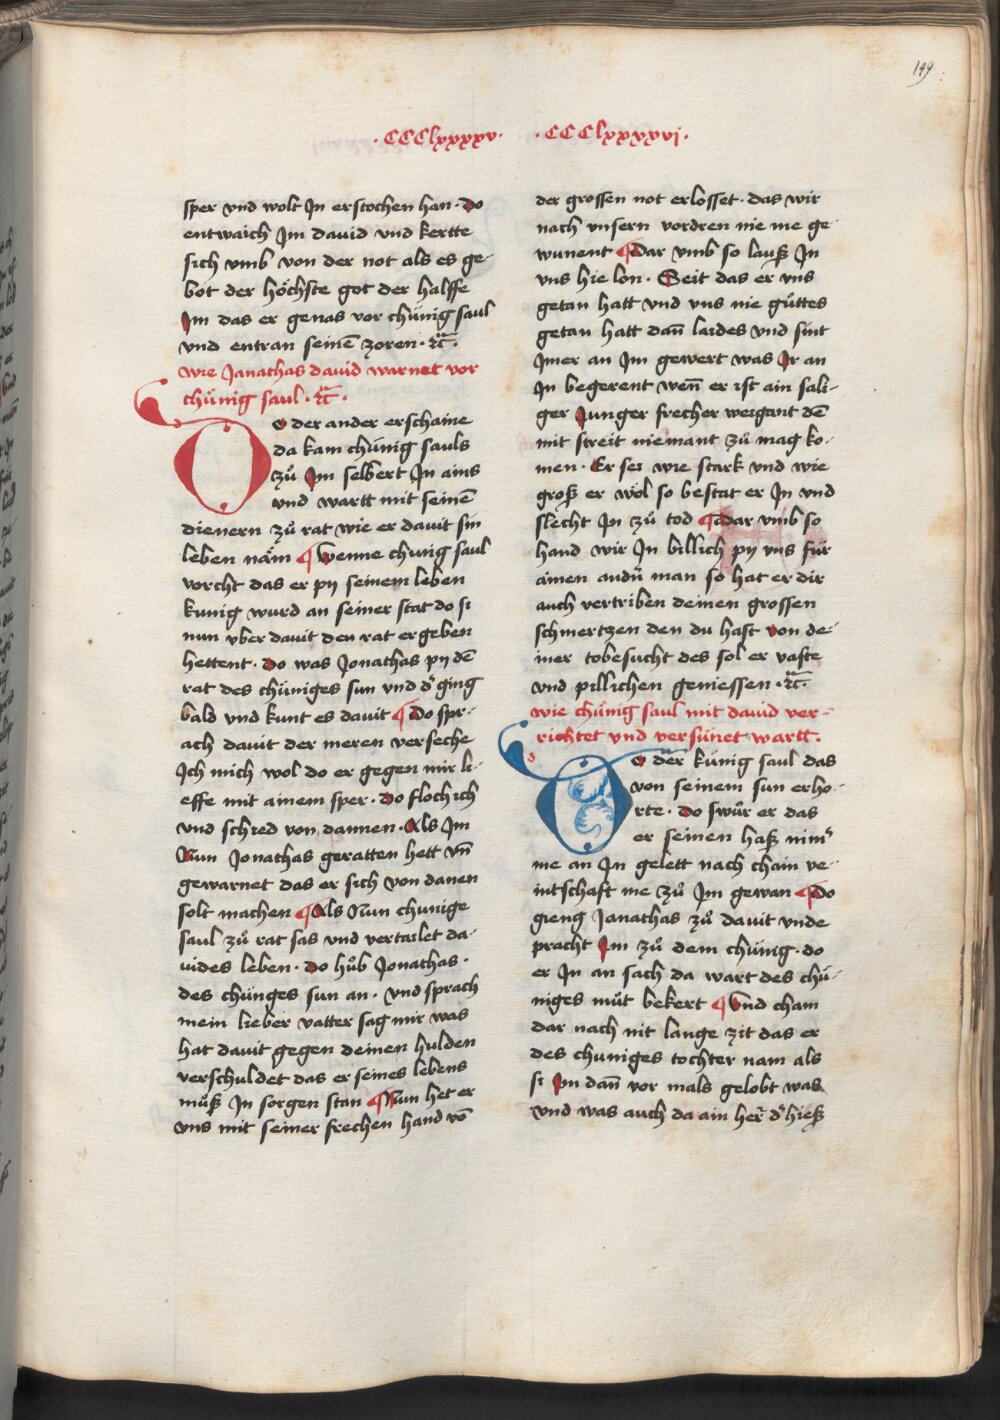 199
· CCClxxxxv ·
· CCClxxxxvj ·
sper vnd wolt Jn erstochen han · do
entwaich Jm dauid vnd kertte
sich vmb von der not als es ge-
bot der höchste got der halffe
Jm das er genas vor chünig saul
vnd entran seinē zoren · ⁊c̄ ·
wie Janathas dauid warnet vor
chünig saul · ⁊c̄ ·
DO der ander erschaine
da kam chünig sauls
zů Jm selbert Jn ains
vnd wartt mit seinē
dienern zů rat wie er dauit sin
leben näm ¶ wenne chunig saul
vorcht das er pij seinem leben
kunig wurd an seiner stat do si
nun vber dauit den rat ergeben
hettent · do was Jonathas pij dē
rat des chüniges sun vnd dˀ ging
bald vnd kunt es dauit ¶ Do spr-
ach dauit der meren verseche
Jch mich wol do er gegen mir li-
effe mit ainem sper · do floch ich
vnd schied von dannen · Als Jm
Nun Jonathas geratten hett vn̄
gewarnet das er sich von danen
solt machen ¶ Als Nun chunige
saul zů rat sas vnd vertailet da-
uides leben · do hůb Jonathas ·
des chünges sun an · vnd sprach
mein lieber vatter sag mir was
hat dauit gegen deinen hulden
verschuldet das er seines lebens
můß Jn sorgen stan ¶ Nun het er
vns mit seiner frechen hand vō
der grossen not erlosset · das wir
nach vnsern vordren nie me ge-
wunent ¶ Dar vmb so lauß Jn
vns hie lon · Seit das er vns
getan hatt vnd vns nie gůttes
getan hatt dañ laides vnd sint
Jmer an Jm gewert was Jr an
Jn begerent weñ er ist ain säli-
ger Junger frecher weigant dē
mit streit niemant zů mag ko-
men · Er sei wie stark vnd wie
groß er wöl so bestat er Jn vnd
slecht Jn zů tod ¶ dar vmb so
hand wir Jn billich pij vns für
ainen andn̄ man so hat er dir
auch vertriben deinen grossen
schmertzen den du hast von de-
iner tobesucht des sol er vaste
vnd pillichen geniessen · ⁊c̄ ·
wie chünig saul mit dauid ver-
richtet vnd versünet wartt ·
DO der künig saul das
von seinem sun erho-
rte · do swůr er das
er seinen haß nimˀ
me an Jn gelett nach chain ve-
intschaft me zů Jm gewan ¶ Do
gieng Janathas zů dauit vnde
pracht Jm zů dem chünig · do
er Jn an sach da wart des chü-
niges můt bekert ¶ Vnd cham
dar nach nit lange zit das er
des chuniges tochter nam als
si Jm dañ vor mals gelobt was
vnd was auch da ain her̄ dˀ hieß